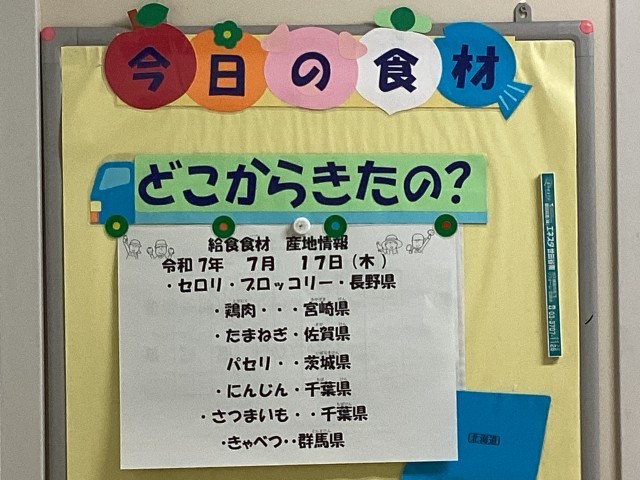 今日の食材
どこからきたの?
給食食材 産地情報
令和7年 7月 17日(木)
・セロリ・ブロッコリー・長野県
・鶏肉・・・宮崎県
・たまねぎ・佐賀県
パセリ・・茨城県
・にんじん・千葉県
・さつまいも・・千葉県
・きゃべつ・・群馬県
北海道